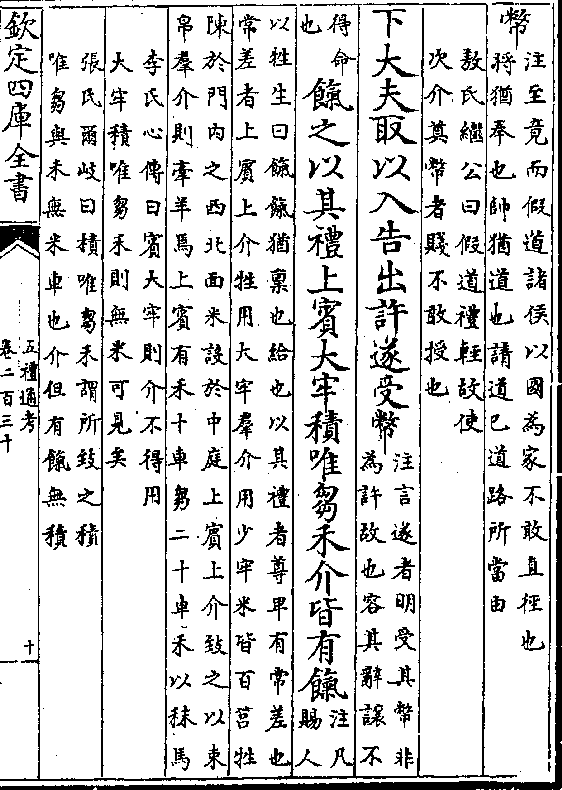 幣
注至竟而假道諸侯以國為家不敢直徑也
將猶奉也帥猶道也請道已道路所當由
敖氏繼公曰假道禮輕故使
次介奠幣者賤不敢授也
下大夫取以入告出許遂受幣
注言遂者明受其幣非
為許故也容其辭讓不
得命
也
餼之以其禮上賓大牢積唯芻禾介皆有餼
注凡
賜人
以牲生曰餼餼猶稟也給也以其禮者尊卑有常差也
常差者上賓上介牲用大牢羣介用少牢米皆百筥牲
陳於門內之西北面米設於中庭上賓上介致之以束
帛羣介則牽羊焉上賓有禾十車芻二十車禾以秣馬
李氏心傳曰賓大牢則介不得用
大牢積唯芻禾則無米可見矣
張氏爾岐曰積唯芻禾謂所致之積
唯芻與禾無米車也介但有餼無積
欽定四庫全書
五禮通考
卷二百三十
十